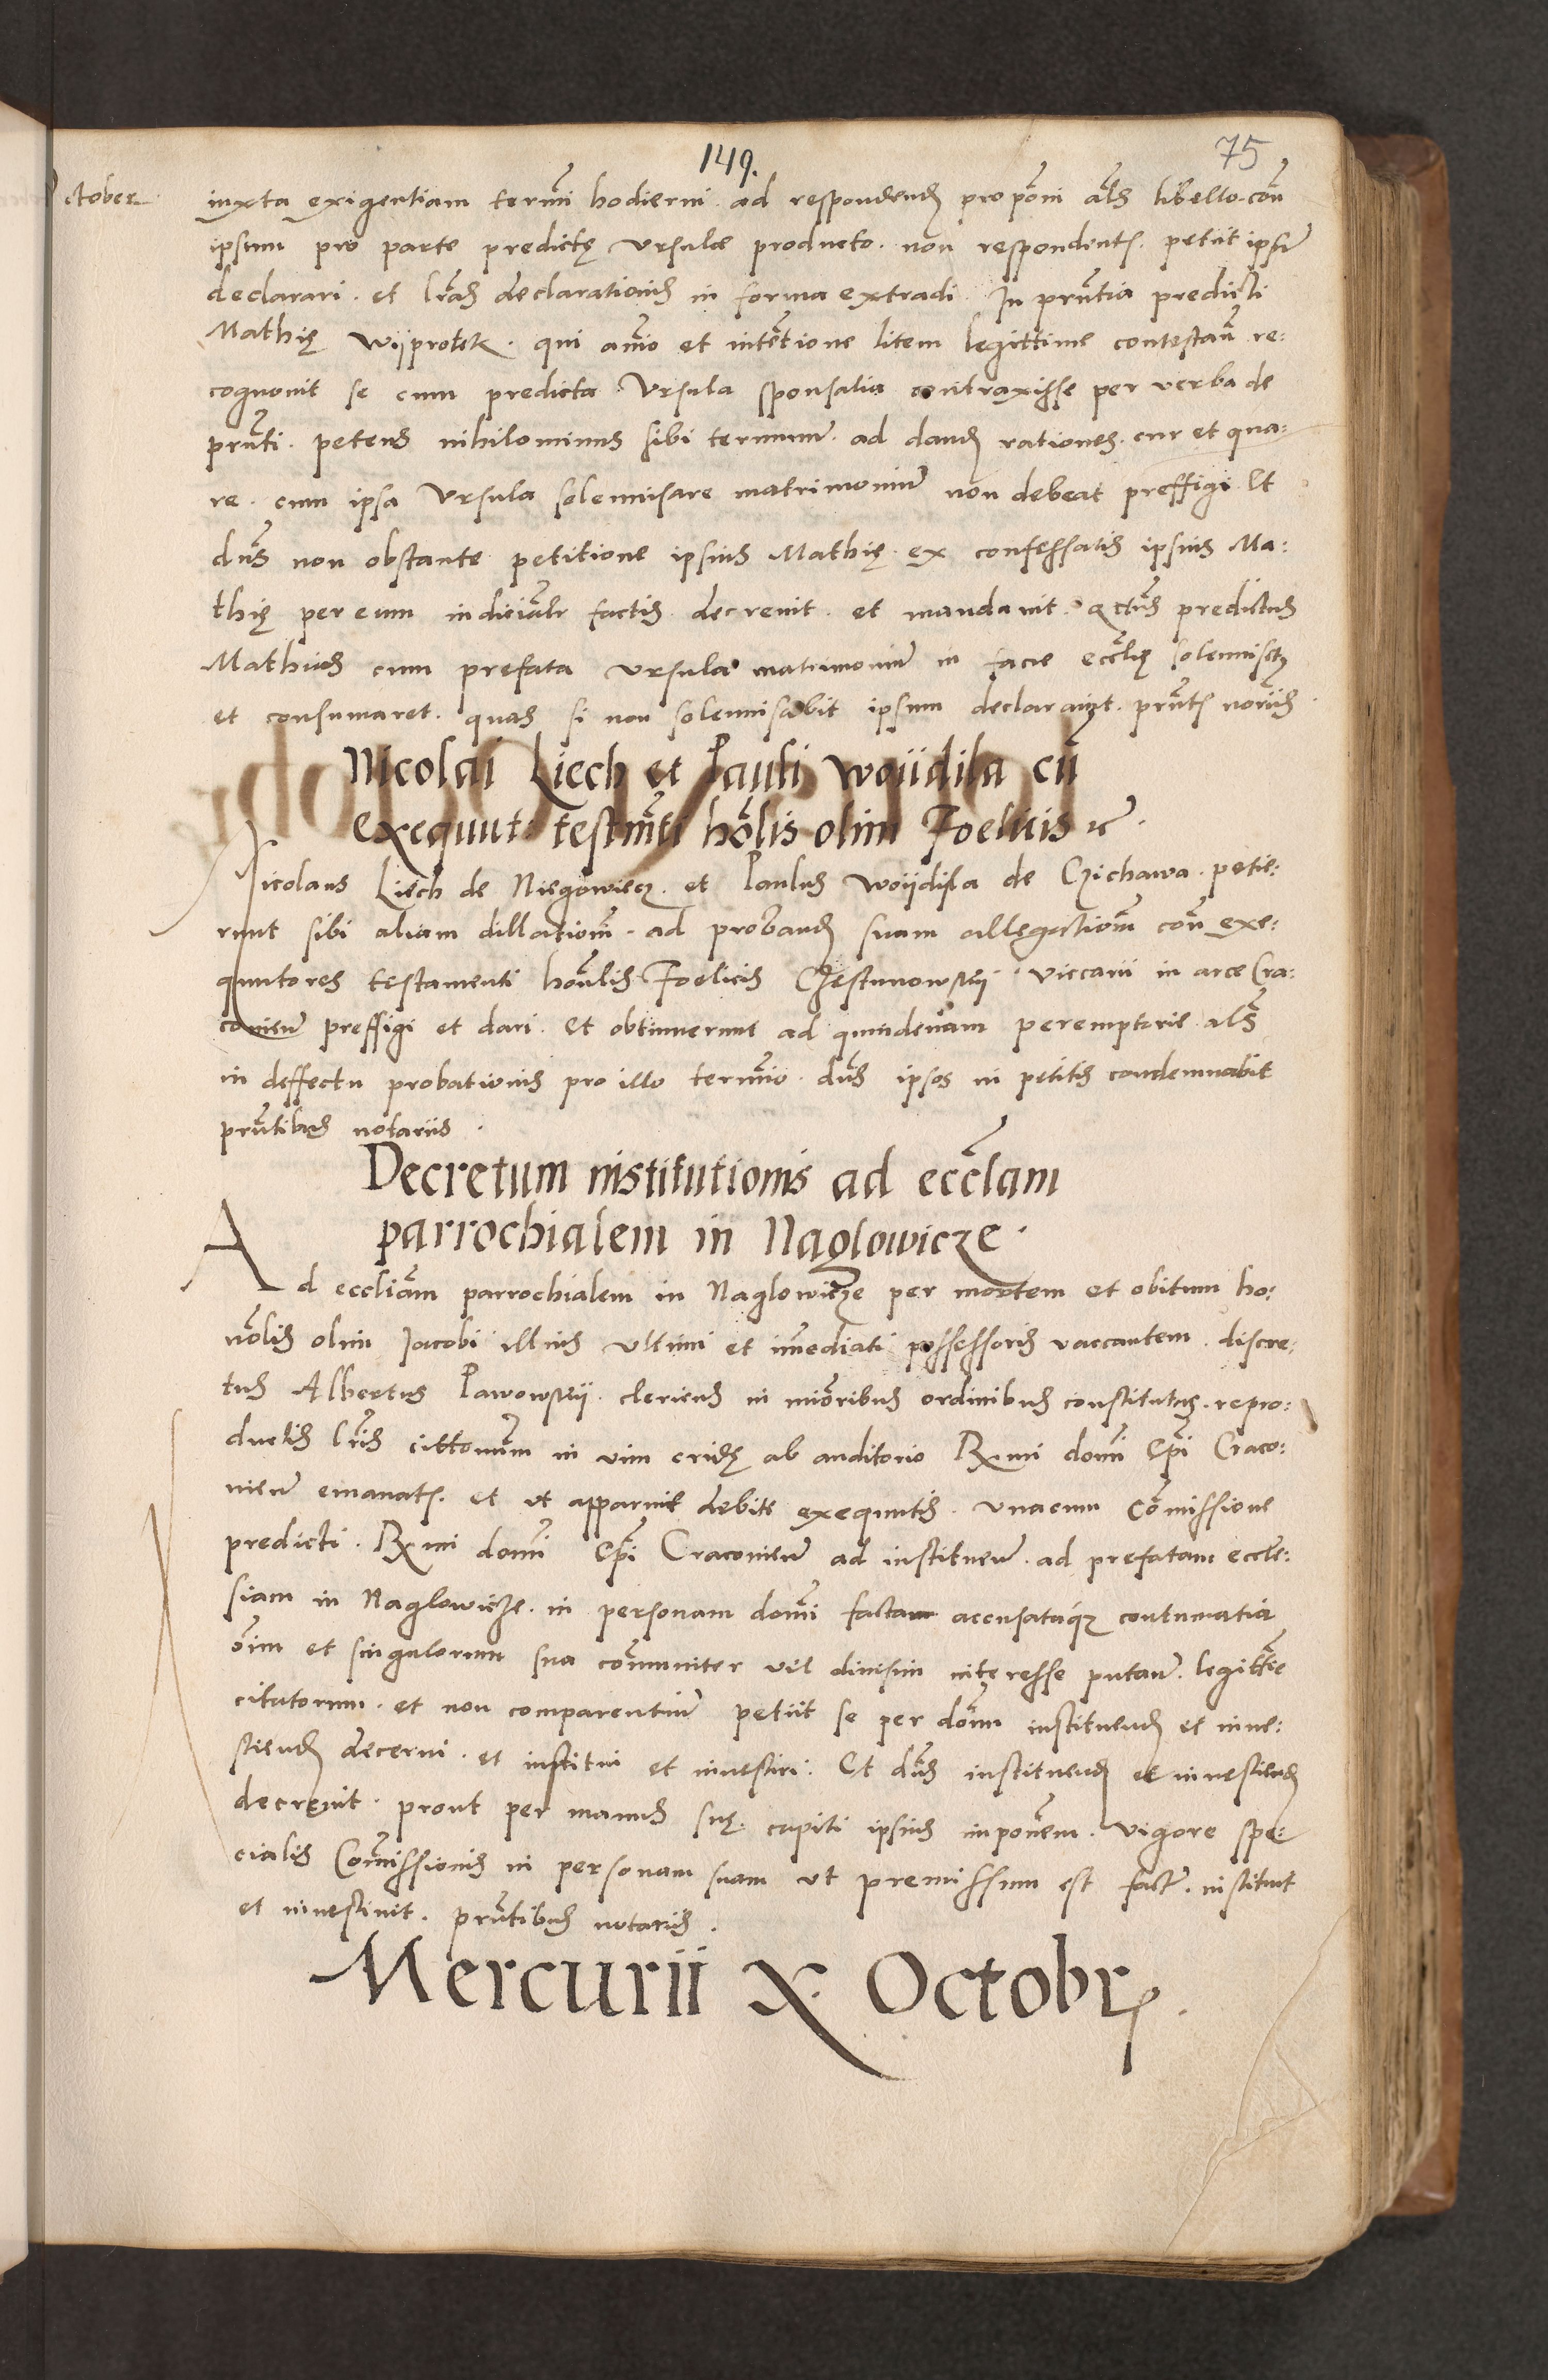 149.
75
October
iuxta exigentiam termī hodierni ad respondendū propōni als libello con̄
ipsum pro parte predictę Ursulæ producto. non respondentē. petiit ipsū
declarari. et lrās declarationis in forma extradi. In prñtia predicti
Mathię Wijprotek. qui animo et intentione litem legittime contestan̄ re:
cognovit se cum predicta Ursula sponsalia contraxisse per verba de
prñti. petens nihilominus sibi terminum ad dand rationes. cur et qua:
re. cum ipsa Ursula solennisare matrimoniū non debeat preffigi. Et
dñs non obstante petitione ipsius Mathię ex confessatis ipsius Ma:
thię per eum iudicialr factis decrevit. et mandavit. qctus predictus
Mathias cum prefata Ursula matrimoniū in facie eccliē solennisetq
et consumaret. quas si non solennisabit ipsum declaravit. prñts notariis
Nicolai Liech et Pauli Woijdila cū
exequut: testmti hōlis olim Foelicis rc.
Nicolaus Liech de Niegowiecz. et Paulus Woijdila de Czichawa. petie:
runt sibi aliam dillationē. ad proband suam allegationē con̄ exe:
quutores testamenti honlis Foelicis Chestunowskij viccarii in arce Cra:
covien̄ preffigi et dari. Et obtinuerunt ad quindenam peremptorie als
in deffectu probationis pro illo termīo. dñs ipsos in petitis condemnabit
prñtibus notariis.
Decretum institutionis ad ecclam
parrochialem in Naglowicze.
Ad eccliam parrochialem in Naglowicze per mortem et obitum ho:
norlis olim Jacobi illius ultimi et immediati possessoris vaccantem. discre:
tus Albertus Pawowskij. clericus in minoribus ordinibus constitutus. repro:
ductis lris cittonum in vim cridę ab auditorio Rxmi domī Epi Craco:
vien̄ emanatis. et ut apparuit debite exequutis. unacum commissione
predicti. Rxmi domī Epi Cracovien̄ ad instituen̄. ad prefatam eccle:
siam in Naglowicze. in personam domī factam accusataq. contumatia
oīm et singulorum sua communiter vel divisim interesse putan̄. legittie
citatorum. et non comparentiū petiit se per dom̄ instituend et inve:
stiend decerni. et institui et investiri. Et dñs instituend et investiend
decrevit. prout per manus suę. capiti ipsius imponem. vigore spe:
cialis Commissionis in personam suam ut premissum est factę. instituit
et investivit. prñtibus notariis.
Mercurii X. Octobr.